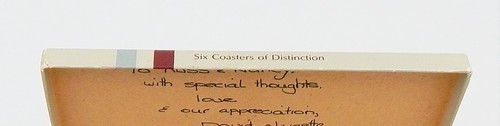 Six Coasters of Distinction
To Russ & Nancy.
with special thoughts,
love
& our appreciation,
David